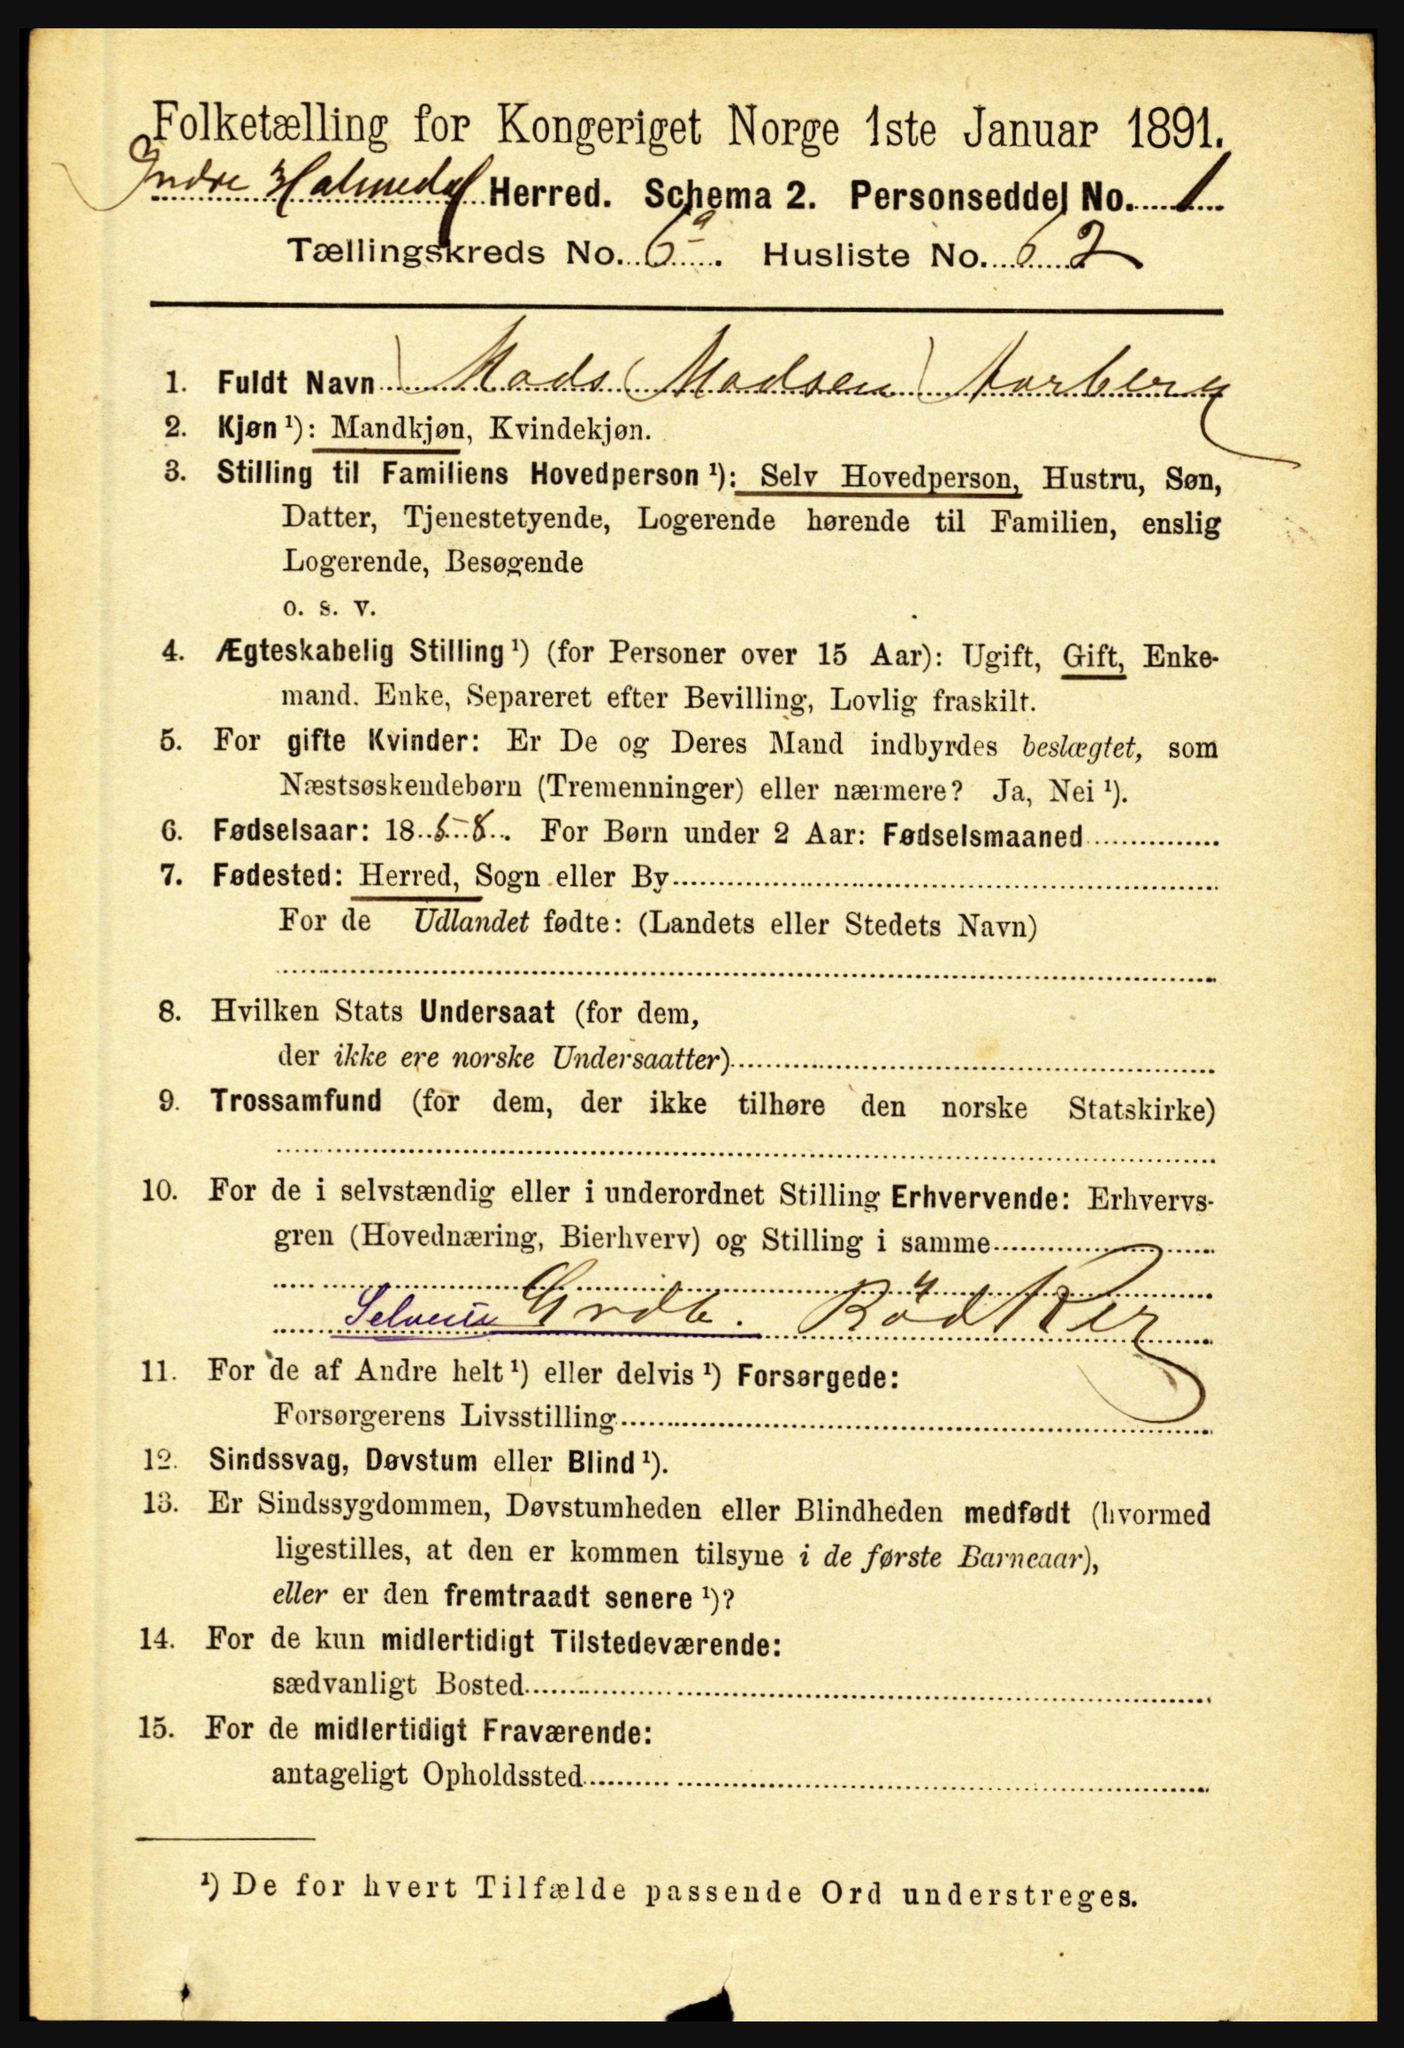 Folketælling for Kongeriget Norge 1ste Januar 1891.
Indre Holmedal Herred. Schema 2. Personseddel No. 1
Tællingskreds No. 6a. Husliste No. 62
1. Fuldt Navn Mads Madsen Aarberg
2. Kjøn ¹): Mandkjøn, Kvindekjøn.
3. Stilling til Familiens Hovedperson ¹): Selv Hovedperson, Hustru, Søn,
Datter, Tjenestetyende, Logerende hørende til Familien, enslig
Logerende, Besøgende
o. s. v.
4. Ægteskabelig Stilling ¹) (for Personer over 15 Aar): Ugift, Gift, Enke-
mand. Enke, Separeret efter Bevilling, Lovlig fraskilt.
5. For gifte Kvinder: Er De og Deres Mand indbyrdes beslægtet, som
Næstsøskendebørn (Tremenninger) eller nærmere? Ja, Nei ¹).
6. Fødselsaar: 1858. For Børn under 2 Aar: Fødselsmaaned
7. Fødested: Herred, Sogn eller By
For de Udlandet fødte: (Landets eller Stedets Navn)
8. Hvilken Stats Undersaat (for dem,
der ikke ere norske Undersaatter)
9. Trossamfund (for dem, der ikke tilhøre den norske Statskirke)
10. For de i selvstændig eller i underordnet Stilling Erhvervende: Erhvervs-
gren (Hovednæring, Bierhverv) og Stilling i samme
Selveier Grdb. Rødker
11. For de af Andre helt ¹) eller delvis ¹) Forsørgede:
Forsørgerens Livsstilling
12. Sindssvag, Døvstum eller Blind ¹).
13. Er Sindssygdommen, Døvstumheden eller Blindheden medfødt (hvormed
ligestilles, at den er kommen tilsyne i de første Barneaar),
eller er den fremtraadt senere ¹)?
14. For de kun midlertidigt Tilstedeværende:
sædvanligt Bosted
15. For de midlertidigt Fraværende:
antageligt Opholdssted
¹) De for hvert Tilfælde passende Ord understreges.